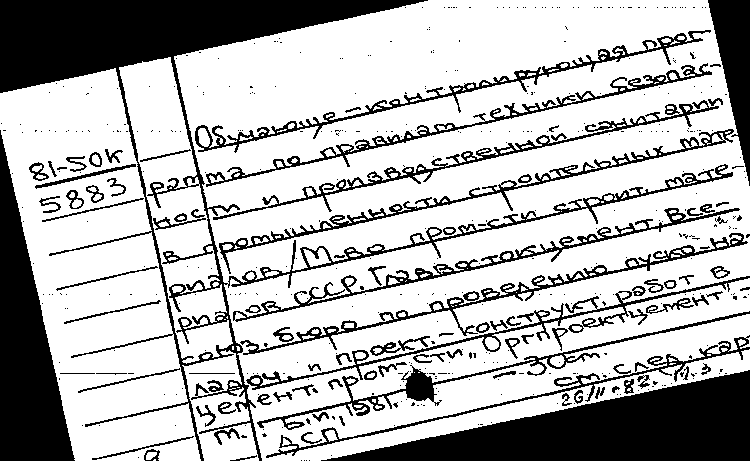 81-50к
5883
Обучающе-контролирующая прог-
рамма по правилам техники безопас-
ности и производственной санитарии
в промышленности строительных мате-
риалов / М-во пром-сти строит. мате-
риалов СССР. Главвостокцемент, Все-
союз. бюро по проведению пуско-на-
ладоч. и проект.-конструкт. работ в
цемент. пром-сти „Оргпроектцемент". -
М. : Б.и., 1981. - 30 см.
ДСП
см. след. кар
26/II-82.